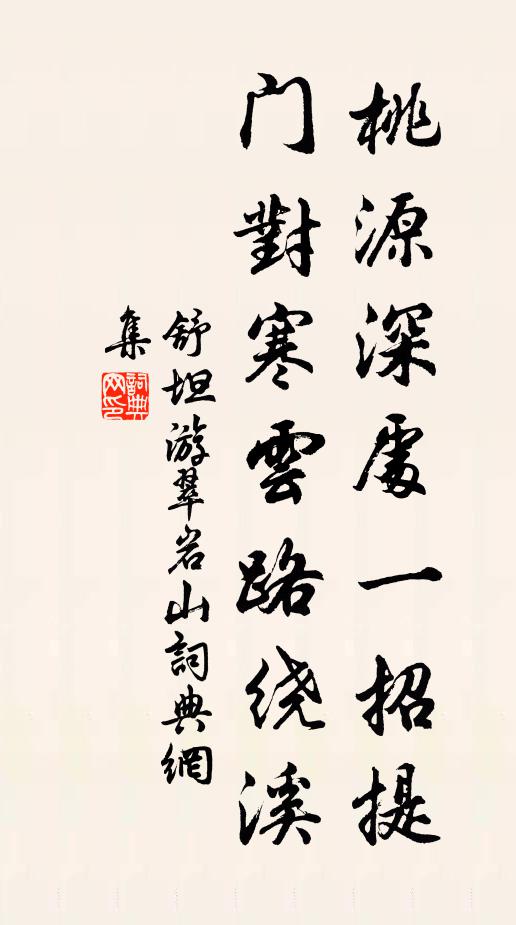 桃源深處一招提
门對寒雲路绕溪
舒坦游翠岩山詞典網
集
詞典网印